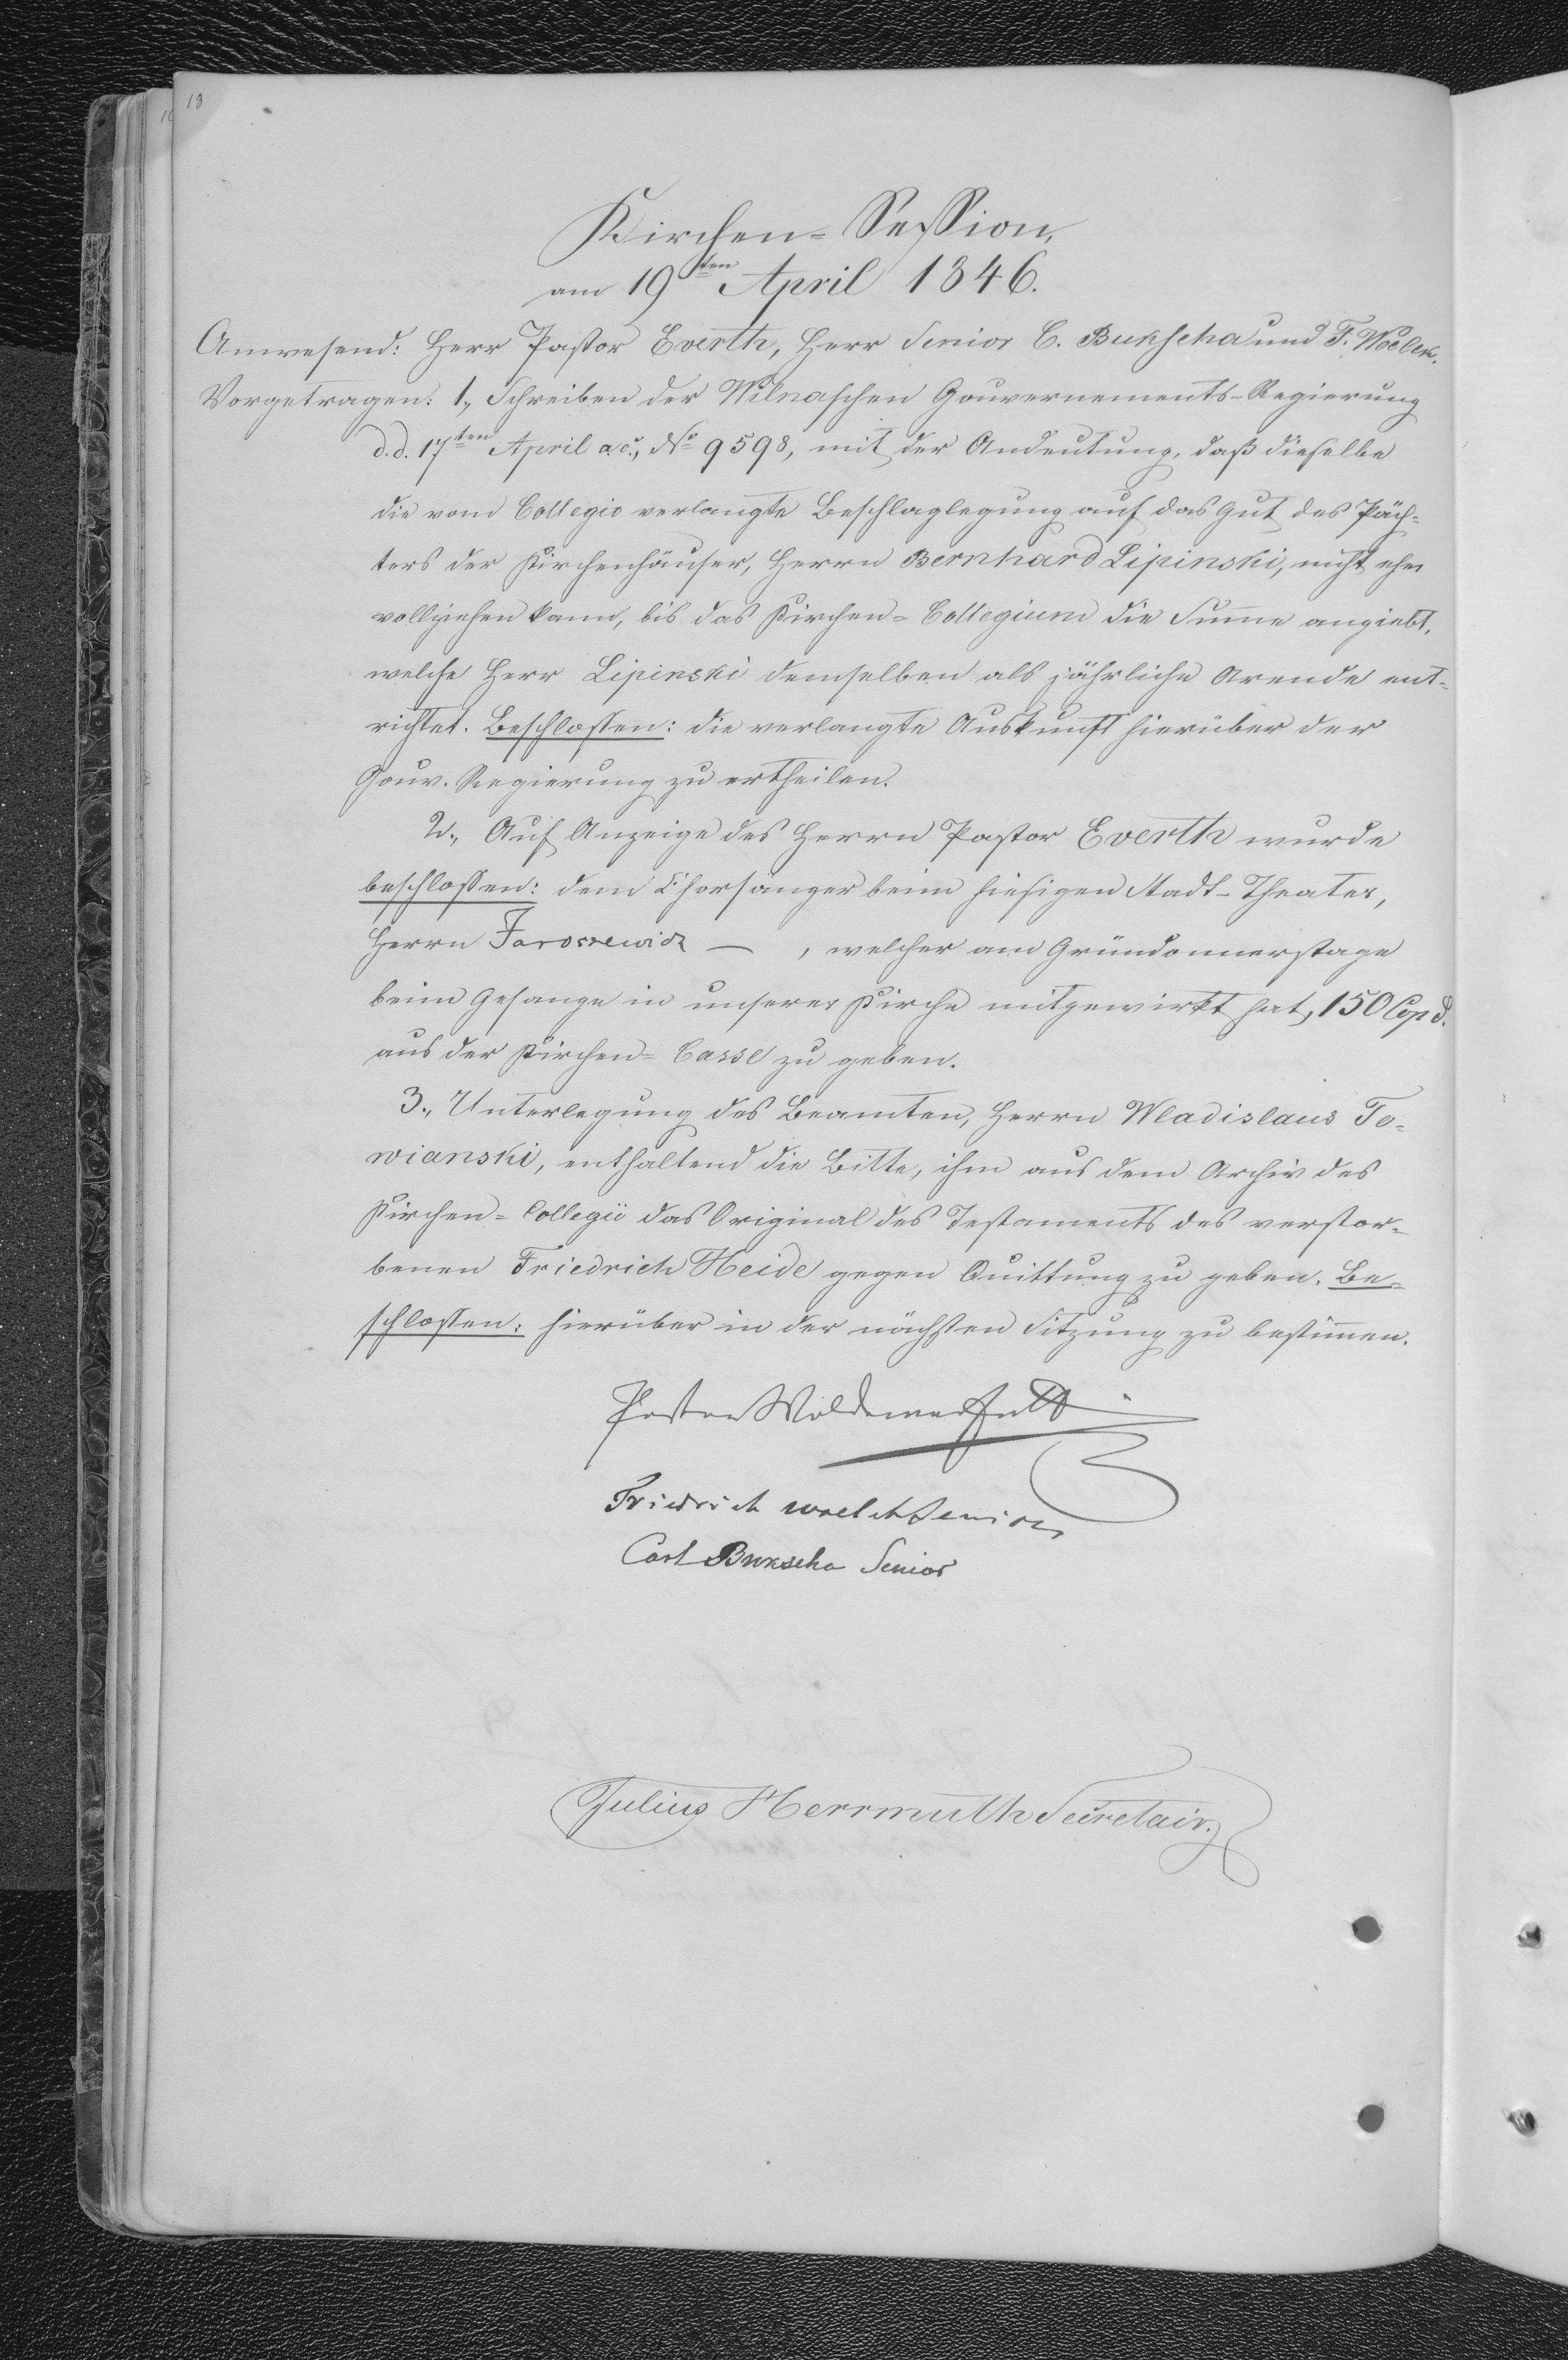 13
Kirchen-Session,
am 19ten April 1846.
Anwesend: Herr Pastor Everth, Herr Senior C. Bukscha und F. Woelck.
Vorgetragen: 1., Schreiben der Wilnaschen Gouvernements-Regierung
d.d. 17ten April a.c., No 9598, mit der Andeutung, daß dieselbe
die vom Collegio verlangte Beschlaglegung auf das Gut des Päch-
ters der Kirchenhäuser, Herrn Bernhard Lipinski, nicht eher
vollziehen kann, bis das Kirchen-Collegium die Sum̄e angiebt,
welche Herr Lipinski demselben als jährliche Arende ent-
richtet. Beschlossen: die verlangte Auskunft hierüber der
Gouv. Regierung zu ertheilen.
2., Auf Anzeige des Herrn Pastor Everth wurde
beschlossen: dem Chorsänger beim hiesigen Stadt-Theater,
Herrn Jaroszewicz — , welcher am Gründonnerstage
beim Gesange in unserer Kirche mitgewirkt hat, 150 Cop S.
aus der Kirchen-Casse zu geben.
3., Unterlegung des Beamten, Herrn Wladislaus To-
wianski, enthaltend die Bitte, ihm aus dem Archiv des
Kirchen-Collegii das Original des Testaments des verstor-
benen Friedrich Heide gegen Quittung zu geben. Be-
schlossen: hierüber in der nächsten Sitzung zu bestim̄en.
Pastor Woldemar Everth
Friedrich Woelck Senior
Carl Bukscha Senior
Julius Herrmuth Secretair.